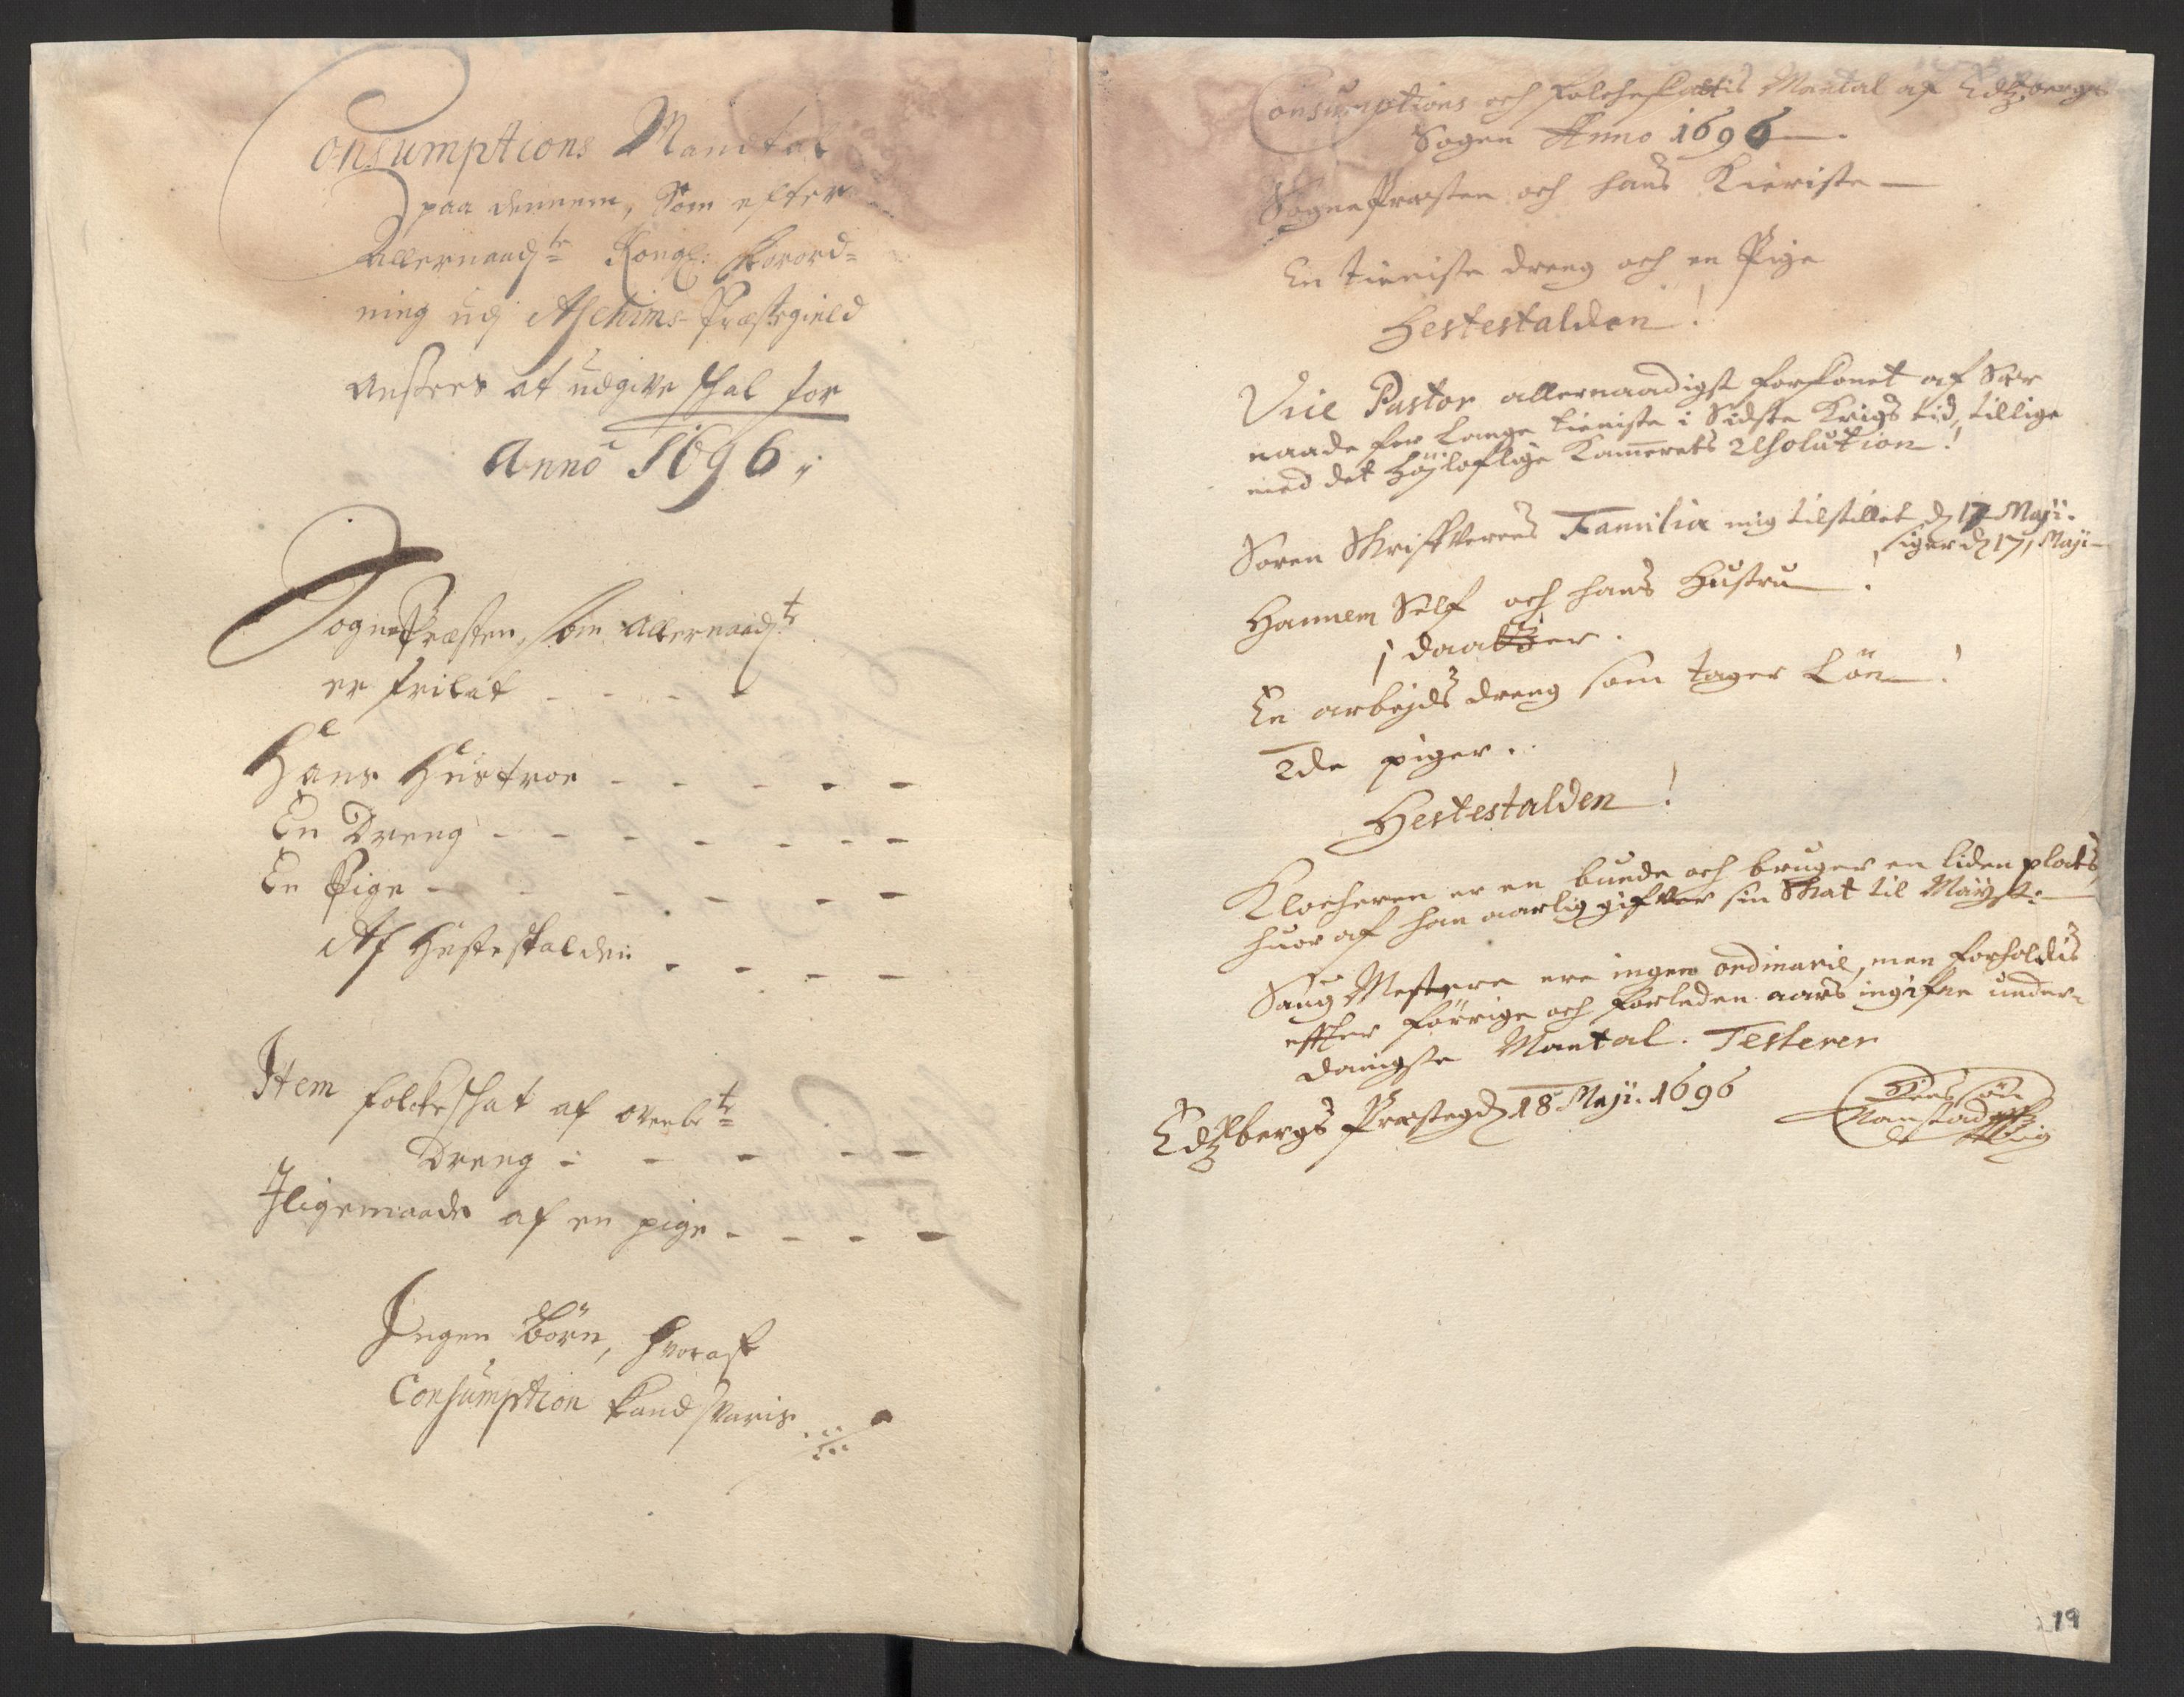 Consumptions Mandtal
paa dennem, Som efter
Allernaadste Kongl: Forord=
ning udj Aschims Præstegield
ansees at udgive schal for
Anno 1696
SognePræsten, som allernaadte
er frilat - - - -
Hans Hustroe - - - - -
En Dreng - - - - - - -
En Pige - - - - - -
Af Hestestalden - - - -
Item folckeschat af ovenbte
Dreng - - - - -
Iligemaade af en pige - - - -
Ingen Börn, hvoraf
Consumption kand svaris
Consumptions och folcheskattis Mantal af Edtzbergs
Sogen Anno 1696
SognePræsten och hans Kieriste
En tieniste dreng och en Pige
Hestestalden!
Vice Pastor allernaadigst forskonet af Sær
naade for lange tieniste i Sidste Krigs tid, tillige
med det Höjloflige Kamerets Resolution!
Soren Skrifverens Familia mig tilstillet d 17 Maji.
siger d 17, Maji
Hannem Self och hans Hustru
1 daatter.
En arbejds dreng som tager Lön!
2de piger.
Hestestalden!
Klocheren er en bunde och bruger en liden plads,
huor af han aarlig gifver sin Skat til Mayst:
Saug Mestere ere ingen ordinarie, men forholdis
effter förrige och forleden aars ingifne under=
danigste Mantal. Testerer
Edtzbergs Prestegd 18 Maji. 1696
19